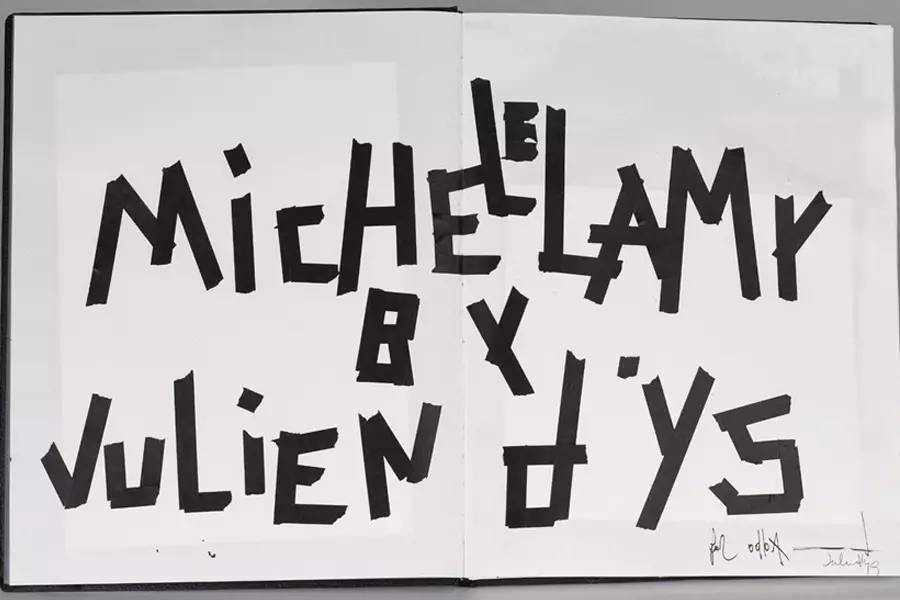 MiCHELE LAMY
BY
JULiEN d'YS